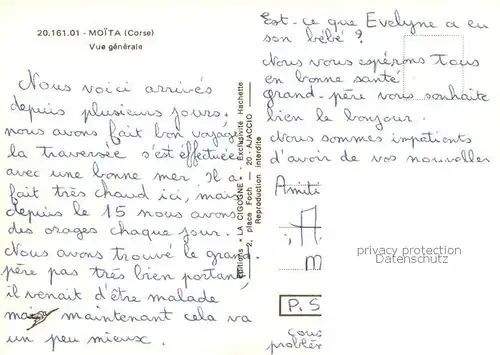 20.161.01 - MOÏTA (Corse)
Vue générale
Nous voici arrivés
depuis plusieurs jours,
nous avons fait bon voyage,
la traversée s'est effectuée
avec une bonne mer. Il a
fait très chaud ici, mais
depuis le 15 nous avons
des orages chaque jour.
Nous avons trouvé le grand-
père pas très bien portant,
il venait d'être malade
mais maintenant cela va
un peu mieux.
Editions "LA CIGOGNE" - Exclusivité Hachette
2, place Foch - 20 - AJACCIO
Reproduction interdite
Est-ce que Evelyne a eu
son bébé ?
Nous vous espérons tous
en bonne santé
grand-père vous souhaite
bien le bonjour.
Nous sommes impatients
d'avoir de vos nouvelles
Amiti
privacy protection
Datenschutz
P.S
problèm